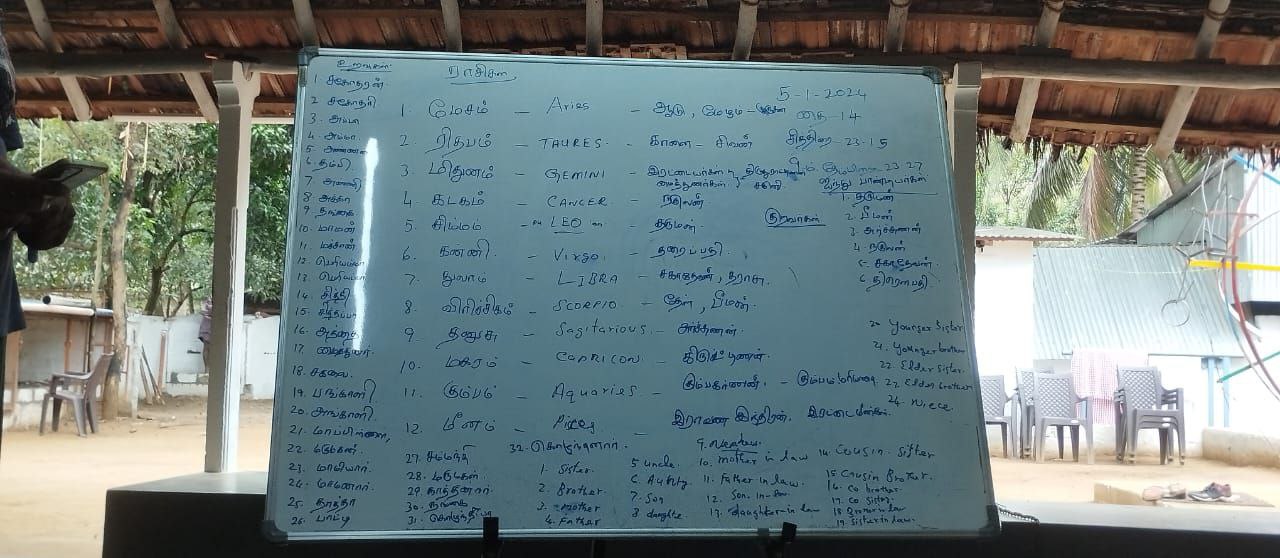 உறவுகள்
1. சகோதரன்
2 சகோதரி
3. அப்பா
4. அம்மா
5 அண்ணன்
6. தம்பி
7. அண்ணி
8 அக்கா
9. தங்கை
10. மாமன்
11. மச்சான்
12. பெரியம்மா
13. பெரியப்பா
14. சித்தி
15. சித்தப்பா
16. அத்தை
17.
18. சகலை.
19. பங்காளி
20. அங்காளி
21. மாப்பிள்ளை,
22. மருமகன்
23. மாமியார்.
24. மாமனார்.
25. தாத்தா
26. பாட்டி
27. சம்மந்தி
28. மருமகள்
29. நாத்தினார்.
30. நங்கை
31. கொழுந்தியா
32. கொழுந்தனார்.
ராசிகள்
5-1-2024
1. மேசம் - Aries - ஆடு, மேடம் - தை-14
2. ரிதபம் - TAURES. - காளை - சிவன் சித்திரை 23-15
3. மிதுனம் - GEMINI - இரட்டையர்கள்
4 கடகம் - CANCER - நகுலன்
5. சிம்மம் - LEO - தருமன்.
6. கன்னி - Virgo. -
7. துலாம் - LIBRA - சகாதேவன், தராசு.
8. விரிச்சிகம் - SCORPIO. - தேள், பீமன்.
9. தனுசு - Sagitarious. - அர்ச்சுனன்.
10. மகரம் - CAPRICON. -
11. கும்பம் - Aquaries - கும்பகர்ணன். -
12. மீனம் - Pices - இராவண இந்திரன். இரட்டை மீன்கள்.
ஐந்து பாண்டியர்கள்
1. தருமன்
2. பீமன்
3. அர்ச்சுனன்
4. நகுலன்
5. சகாதேவன்.
6. திரௌபதி
1. Sister.
2. Brother.
3. mother
4. Father
5 uncle.
6. Aunty
7. Son
8. daughte.
10. mother in law
11. Father in law.
12. Son. in-law.
13. daughter in law
14. Cousin. Sister
15. Cousin Brother.
16. Co brother.
17. Co Sister.
18 Brother in law
19. Sister in law.
20. Younger Sister
21. younger brother
22. Elder Sister.
23. Elder brother
24. Niece.